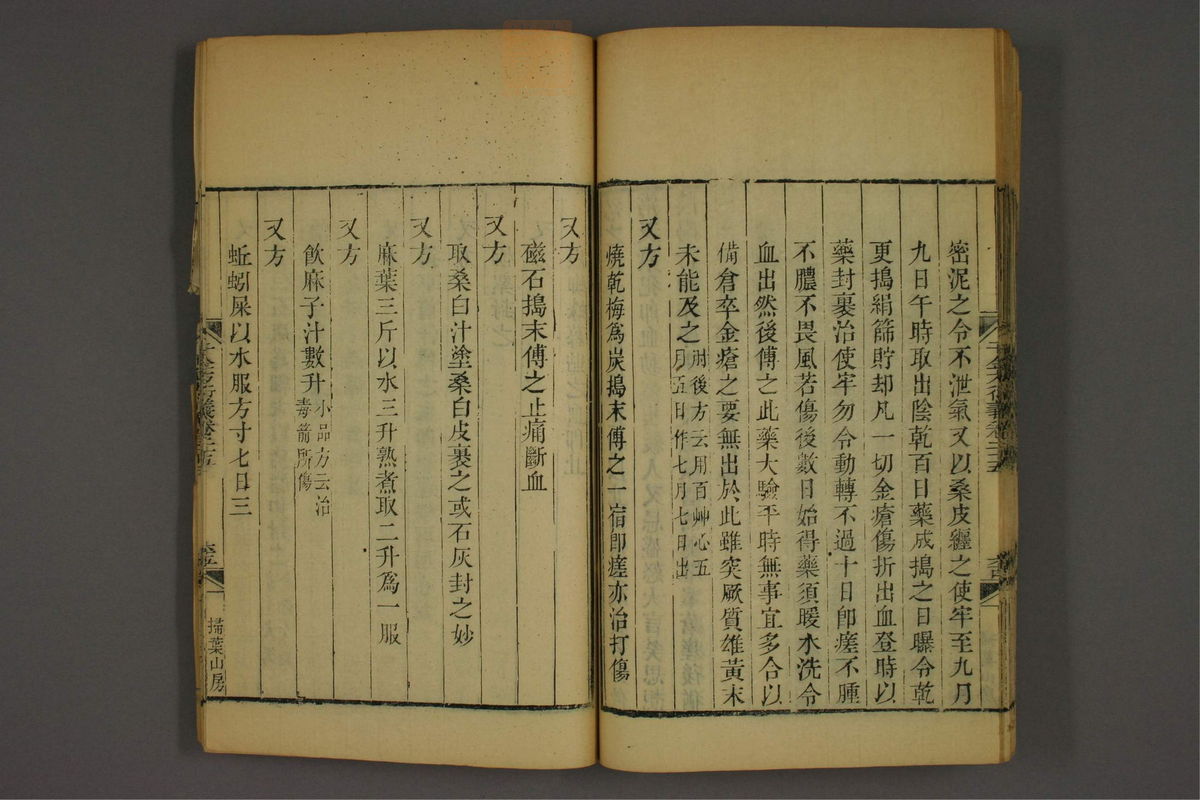 密泥之令不泄氣又以桑皮纏之使牢至九月
九日午時取出陰乾百日藥成搗之日曝令乾
更搗絹篩貯却凡一切金瘡傷折出血登時以
藥封裹治使牢勿令動轉不過十日卽瘥不腫
不膿不畏風若傷後數日始得藥須暖水洗令
血出然後傅之此藥大驗平時無事宜多合以
備倉卒金瘡之要無出於此雖突厥質雄黃末
未能及之
肘後方云用百艸心五
月五日作七月七日出
又方
燒乾梅爲炭搗末傅之一宿卽瘥亦治打傷
又方
磁石搗末傅之止痛斷血
又方
取桑白汁塗桑白皮裹之或石灰封之妙
又方
麻葉三斤以水三升熟煮取二升爲一服
又方
飲麻子汁數升
小品方云治
毒箭所傷
又方
蚯蚓屎以水服方寸匕日三
千金方衍義卷二十五
掃葉山房